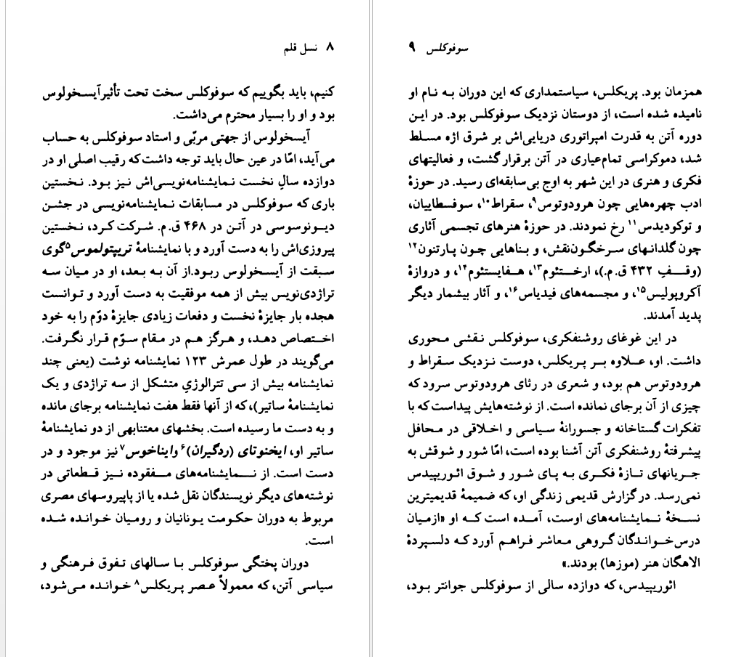 ۸ نسل قلم
کنیم، باید بگوییم که سوفوکلس سخت تحت تأثیرآیسخولوس
بود و او را بسیار محترم می‌داشت.
آیسخولوس از جهتی مربّی و استاد سوفوکلس به حساب
می‌آید، امّا در عین حال باید توجه داشت‌که رقیب اصلی او در
دوازده سالِ نخست نمایشنامه‌نویسی‌اش نیز بود. نخستین
باری که سوفوکلس در مسابقات نمایشنامه‌نویسی در جشن
دیونوسوسی در آتن در ۴۶۸ ق.م. شرکت کرد، نخستین
پیروزی‌اش را به دست آورد و با نمایشنامهٔ تریپتولموس۵گوی
سبقت از آیسخولوس ربود.از آن به بعد، او در میان سه
تراژدی‌نویس بیش از همه موفقیت به دست آورد و توانست
هجده بار جایزهٔ نخست و دفعات زیادی جایزهٔ دوّم را به خود
اختصاص دهد، و هرگز هم در مقام سوّم قرار نگرفت.
می‌گویند در طول عمرش ۱۲۳ نمایشنامه نوشت (یعنی چند
نمایشنامه بیش از سی تترالوژیِ متشکل از سه تراژدی و یک
نمایشنامهٔ ساتیر)،که از آنها فقط هفت نمایشنامه برجای مانده
و به دست ما رسیده است. بخشهای معتنابهی از دو نمایشنامهٔ
ساتیر او، ایخنوتای (ردگیران)۶ وایناخوس۷ نیز موجود و در
دست است. از نمایشنامه‌های مفقوده نیز قطعاتی در
نوشته‌های دیگر نویسندگان نقل شده یا از پاپیروسهای مصری
مربوط به دوران حکومت یونانیان و رومیان خوانده شده
است.
دوران پختگی سوفوکلس با سالهای تفوق فرهنگی و
سیاسی آتن، که معمولاً عصر پریکلس۸ خوانده می‌شود،
سوفوکلس ۹
همزمان بود. پریکلس، سیاستمداری که این دوران به نام او
نامیده شده است، از دوستان نزدیک سوفوکلس بود. در این
دوره آتن به قدرت امپراتوری دریایی‌اش بر شرق اژه مسلط
شد، دموکراسی تمام‌عیاری در آتن برقرار گشت، و فعالیتهای
فکری و هنری در این شهر به اوج بی‌سابقه‌ای رسید. در حوزهٔ
ادب چهره‌هایی چون هرودوتوس۹، سقراط۱۰، سوفسطاییان،
و توکودیدس۱۱ رخ نمودند. در حوزهٔ هنرهای تجسمی آثاری
چون گلدانهای سرخگون‌نقش، و بناهایی چون پارتنون۱۲
(وقفِ ۴۳۲ ق.م.)، ارختئوم۱۳، هفایستئوم۱۴، و دروازهٔ
آکروپولیس۱۵، و مجسمه‌های فیدیاس۱۶، و آثار بیشمار دیگر
پدید آمدند.
در این غوغای روشنفکری، سوفوکلس نقشی محوری
داشت. او، علاوه بر پریکلس، دوست نزدیک سقراط و
هرودوتوس هم بود، و شعری در رثای هرودوتوس سرود که
چیزی از آن برجای نمانده است. از نوشته‌هایش پیداست که با
تفکرات گستاخانه و جسورانهٔ سیاسی و اخلاقی در محافل
پیشرفتهٔ روشنفکری آتن آشنا بوده است، امّا شور و شوقش به
جریانهای تازهٔ فکری به پای شور و شوق ائوریپیدس
نمی‌رسد. درگزارش قدیمی زندگی او، که ضمیمهٔ قدیمیترین
نسخهٔ نمایشنامه‌های اوست، آمده است که او «ازمیان
درس‌خواندگان گروهی معاشر فراهم آورد که دلسپردهٔ
الاهگان هنر (موزها) بودند.»
ائوریپیدس، که دوازده سالی از سوفوکلس جوانتر بود،